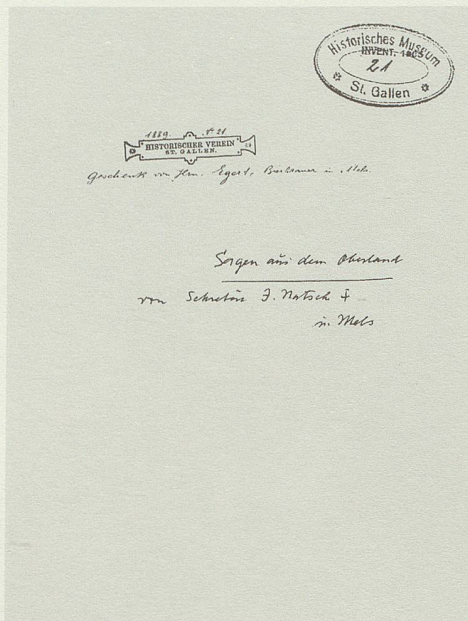 Historisches Museum
INVENT. 1905
21
St. Gallen
1889. № 21
HISTORISCHER VEREIN
ST. GALLEN.
Geschenk von Hrn. Egert, Bierbrauer in Mels.
Sagen aus dem Oberland
von Sekretär J. Natsch †
in Mels